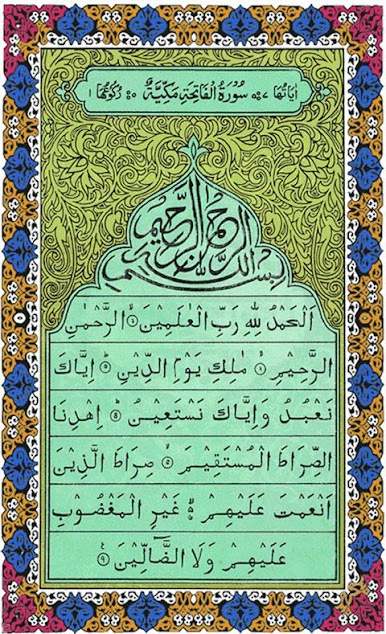 اٰيَاتُهَا ٧ سُوْرَةُ الْفَاتِحَةِ مَكِّيَّةٌ رُكُوْعُهَا ١
بِسْمِ اللّٰهِ الرَّحْمٰنِ الرَّحِيْمِ
اَلْحَمْدُ لِلّٰهِ رَبِّ الْعٰلَمِيْنَ ۙ الرَّحْمٰنِ
الرَّحِيْمِ ۙ مٰلِكِ يَوْمِ الدِّيْنِ ؕ اِيَّاكَ
نَعْبُدُ وَاِيَّاكَ نَسْتَعِيْنُ ؕ اِهْدِنَا
الصِّرَاطَ الْمُسْتَقِيْمَ ۙ صِرَاطَ الَّذِيْنَ
اَنْعَمْتَ عَلَيْهِمْ غَيْرِ الْمَغْضُوْبِ
عَلَيْهِمْ وَلَا الضَّآلِّيْنَ